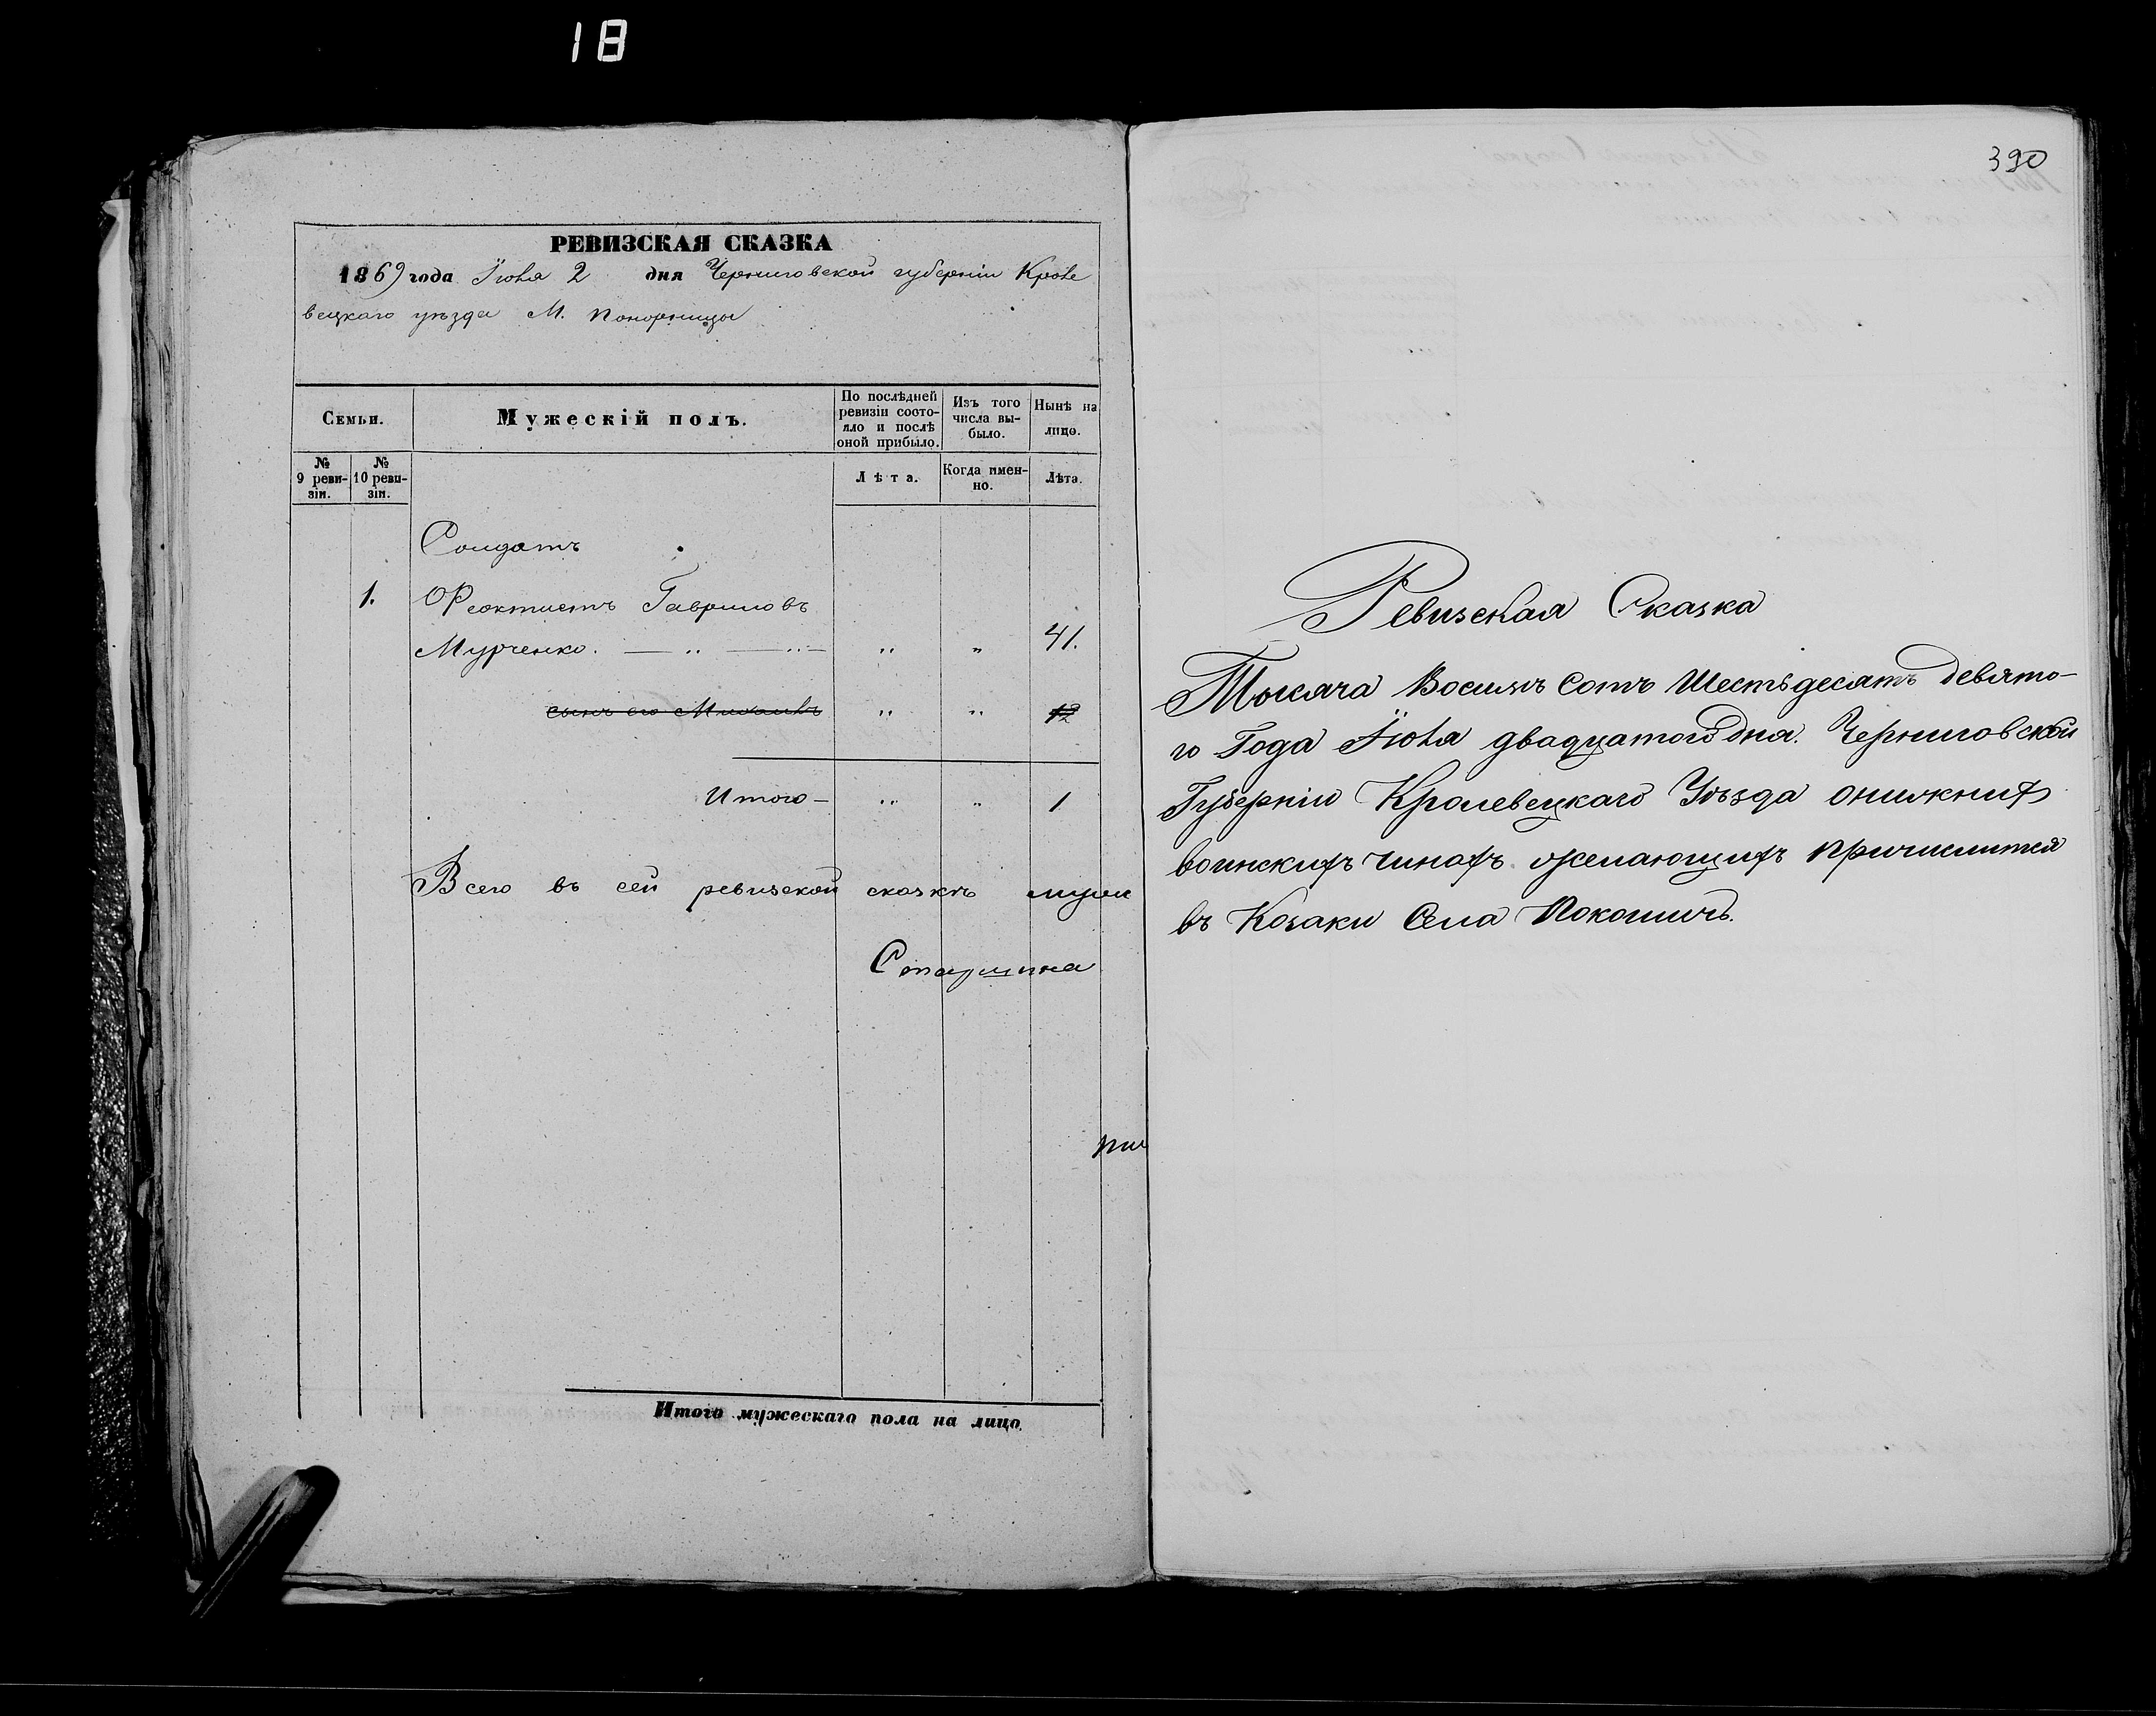 18
РЕВИЗСКАЯ СКАЗКА
1869 года Іюля 2 дня Черниговской губерніи Кроле
вецкаго уѣзда М. Понорницы
Семьи.
Мужескій полъ.
По послѣдней ревизіи состояло и послѣ оной прибыло.
Изъ того числа выбыло.
Нынѣ на лицо.
№ 9 ревизіи.
№ 10 ревизіи.
Лѣта.
Когда именно.
Лѣта.
Солдатъ
1. Феоктистъ Гавриловъ
Мурченко. — „ — „ — „ „ 41.
сынъ его „ „ 12
Итого — „ „ 1
Всего въ сей ревизской сказкѣ мужи
Старшина
Итого мужескаго пола на лицо.
390
Ревизская Сказка
Тысяча Восимъ сотъ Шестьдесятъ девято-
го Года Іюля двадцатого дня. Черниговской
Губерніи Кролевецкаго Уѣзда онижних
воинскихъ чинахъ желающихъ причислится
въ Козаки Села Покошичъ.